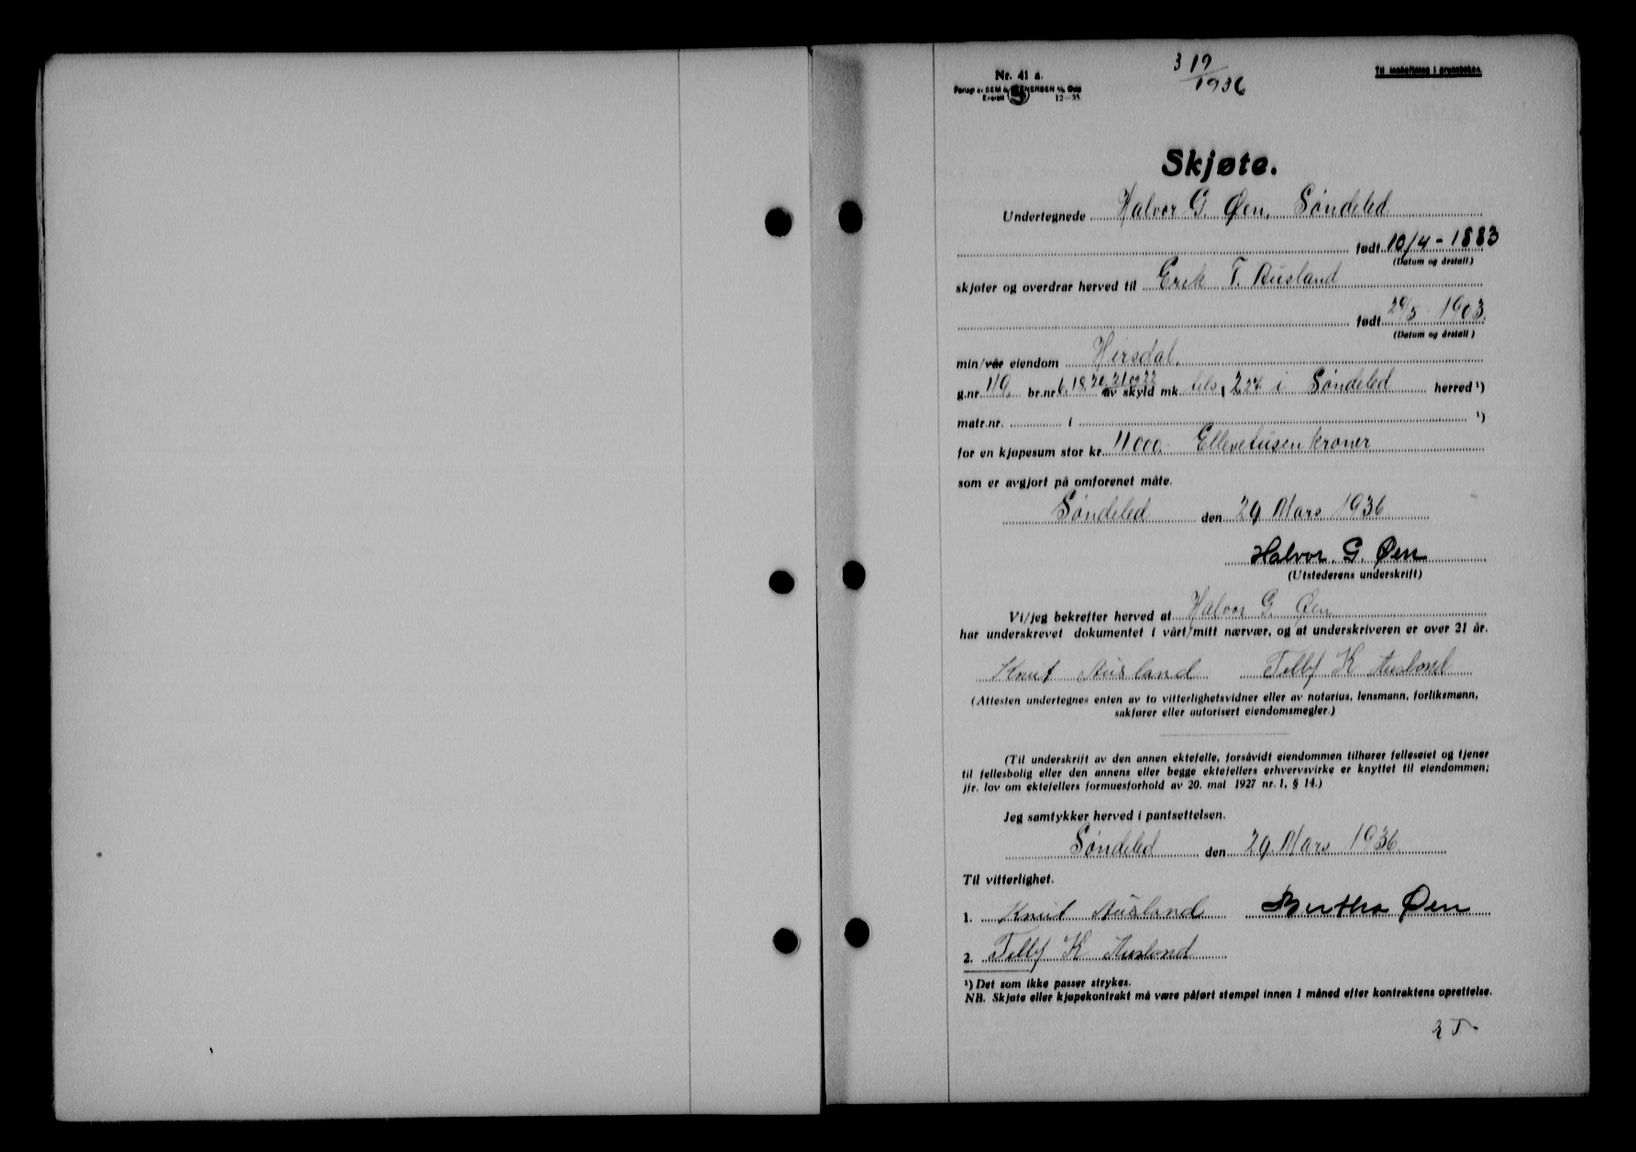 319/1936
Til innheftning i grunnboken.
Nr. 41 a.
12—35
Skjøte.
Undertegnede Halvor G. Øen, Søndeled
født 10/4 - 1883
(Datum og årstall)
skjøter og overdrar herved til Erik T. Ausland
født 29/5 1903.
(Datum og årstall)
min/vår eiendom Hersdal.
g.nr. 119. br.nr. 6, 18, 20, 21 og 22 av skyld mk. tils. 2.24 i Søndeled herred ¹)
matr.nr. i ¹)
for en kjøpesum stor kr. 11000. Ellevetusen kroner
som er avgjort på omforenet måte.
Søndeled den 29 Mars 1936
Halvor. G. Øen
(Utstederens underskrift)
Vi/jeg bekrefter herved at Halvor G. Øen
har underskrevet dokumentet i vårt/mitt nærvær, og at underskriveren er over 21 år.
Knut Ausland K Ausland
(Attesten undertegnes enten av to vitterlighetsvidner eller av notarius, lensmann, forliksmann,
sakfører eller autorisert eiendomsmegler.)
(Til underskrift av den annen ektefelle, forsåvidt eiendommen tilhører felleseiet og tjener
til fellesbolig eller den annens eller begge ektefellers erhvervsvirke er knyttet til eiendommen;
jfr. lov om ektefellers formuesforhold av 20. mai 1927 nr. 1, § 14.)
Jeg samtykker herved i pantsettelsen.
Søndeled den 29 Mars 1936
Til vitterlighet.
1. Knut Ausland Bertha Øen
2. K Ausland
¹) Det som ikke passer strykes.
NB. Skjøte eller kjøpekontrakt må være påført stempel innen 1 måned efter kontraktens oprettelse.